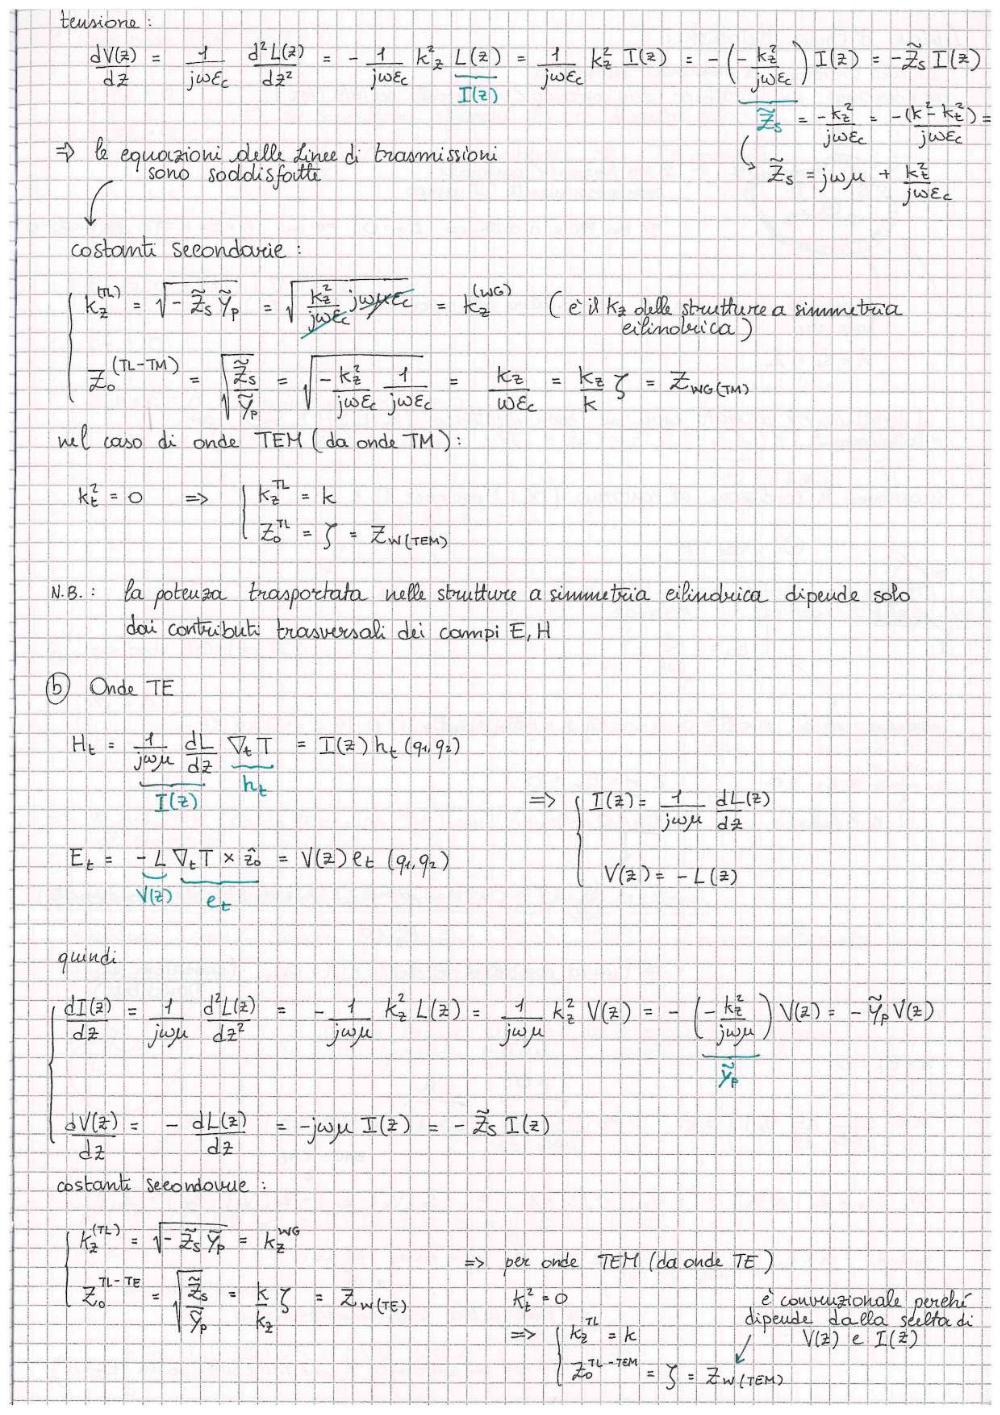 tensione :
dV(z)/dz = 1/jωεc d²L(z)/dz² = - 1/jωεc kz² L(z) = 1/jωεc kz² I(z) = -(-kz²/jωεc) I(z) = -Z̃s I(z)
I(z)
Z̃s = -kz²/jωεc = -(k²-kt²)/jωεc =
⇒ le equazioni delle linee di trasmissioni
sono soddisfatte
Z̃s = jωμ + kt²/jωεc
costanti secondarie :
kz^(TL) = √(-Z̃s Ỹp) = √(kz²/jωεc jωμεc) = kz^(WG) (è il kz delle strutture a simmetria
cilindrica)
Z₀^(TL-TM) = √(Z̃s/Ỹp) = √(-kz²/jωεc 1/jωεc) = kz/ωεc = kz/k ζ = Z WG(TM)
nel caso di onde TEM (da onde TM) :
kt² = 0 => kz^TL = k
Z₀^TL = ζ = Z W(TEM)
N.B. : la potenza trasportata nelle strutture a simmetria cilindrica dipende solo
dai contributi trasversali dei campi E, H
(b) Onde TE
Ht = 1/jωμ dL/dz ∇t T = I(z) ht (q₁,q₂)
I(z) ht
=> I(z) = 1/jωμ dL(z)/dz
Et = -L ∇t T × ẑ₀ = V(z) et (q₁,q₂)
V(z) = -L(z)
V(z) et
quindi
dI(z)/dz = 1/jωμ d²L(z)/dz² = - 1/jωμ kz² L(z) = 1/jωμ kz² V(z) = -(-kz²/jωμ) V(z) = -Ỹp V(z)
Ỹp
dV(z)/dz = - dL(z)/dz = -jωμ I(z) = -Z̃s I(z)
costanti secondarie :
kz^(TL) = √(-Z̃s Ỹp) = kz^WG
=> per onde TEM (da onde TE)
Z₀^TL-TE = √(Z̃s/Ỹp) = k/kz ζ = Z W(TE)
kt² = 0
è convenzionale perché
dipende dalla scelta di
V(z) e I(z)
=> kz^TL = k
Z₀^TL-TEM = ζ = Z W(TEM)